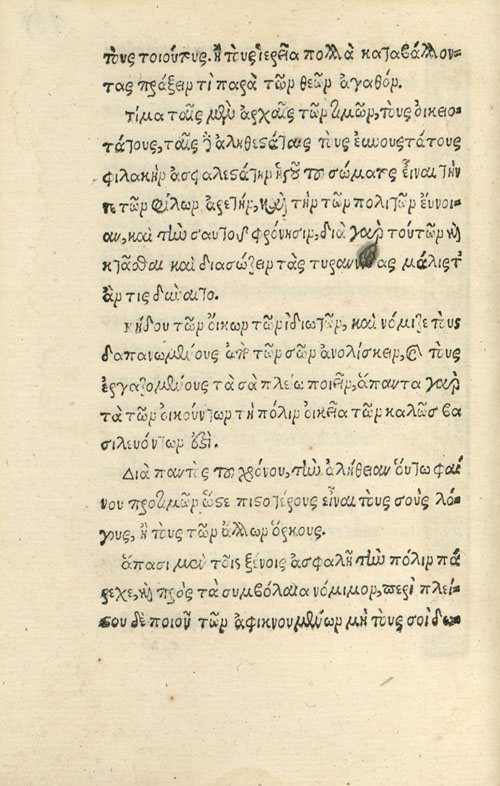 τοὺς τοιούτους. ἢ τοὺς ἱερεῖα πολλὰ καταβάλλον-
τας πράξειν τὶ παρὰ τῶν θεῶν ἀγαθόν.
Τίμα ταῖς μὲν ἀρχαῖς τῶν τιμῶν, τοὺς οἰκειο-
τάτους, ταῖς δὲ ἀληθεστάταις τοὺς εὐνουστάτους
φιλακὴν ἀσφαλεστάτην ἡγοῦ τοῦ σώματος εἶναι τήν
τε τῶν φίλων ἀρετήν, καὶ τὴν τῶν πολιτῶν εὔνοι-
αν, καὶ τὴν σαυτοῦ φρόνησιν, διὰ γὰρ τούτων καὶ
κτᾶσθαι καὶ διασώζειν τὰς τυραννίδας μάλιστ'
ἄν τις δύναιτο.
Κήδου τῶν οἴκων τῶν ἰδιωτῶν, καὶ νόμιζε τοὺς
δαπανωμένους ἀπὸ τῶν σῶν ἀνολίσκειν, καὶ τοὺς
ἐργαζομένους τὰ σὰ πλείω ποιεῖν, ἅπαντα γὰρ
τὰ τῶν οἰκούντων τὴ πόλιν οἰκεῖα τῶν καλῶς βα
σιλευόντων ἐστί.
Διὰ παντὸς τοῦ χρόνου, τὴν ἀλήθειαν οὕτω φαί
νου προτιμῶν ὥστε πιστοτέρους εἶναι τοὺς σοὺς λό-
γους, ἢ τοὺς τῶν ἄλλων ὅρκους.
ἅπασι μὲν τοῖς ξένοις ἀσφαλῆ τὴν πόλιν πά
ρεχε, καὶ πρὸς τὰ συμβόλαια νόμιμον, περὶ πλεί-
στου δὲ ποιοῦ τῶν ἀφικνουμένων μὴ τοὺς σοὶ δω-